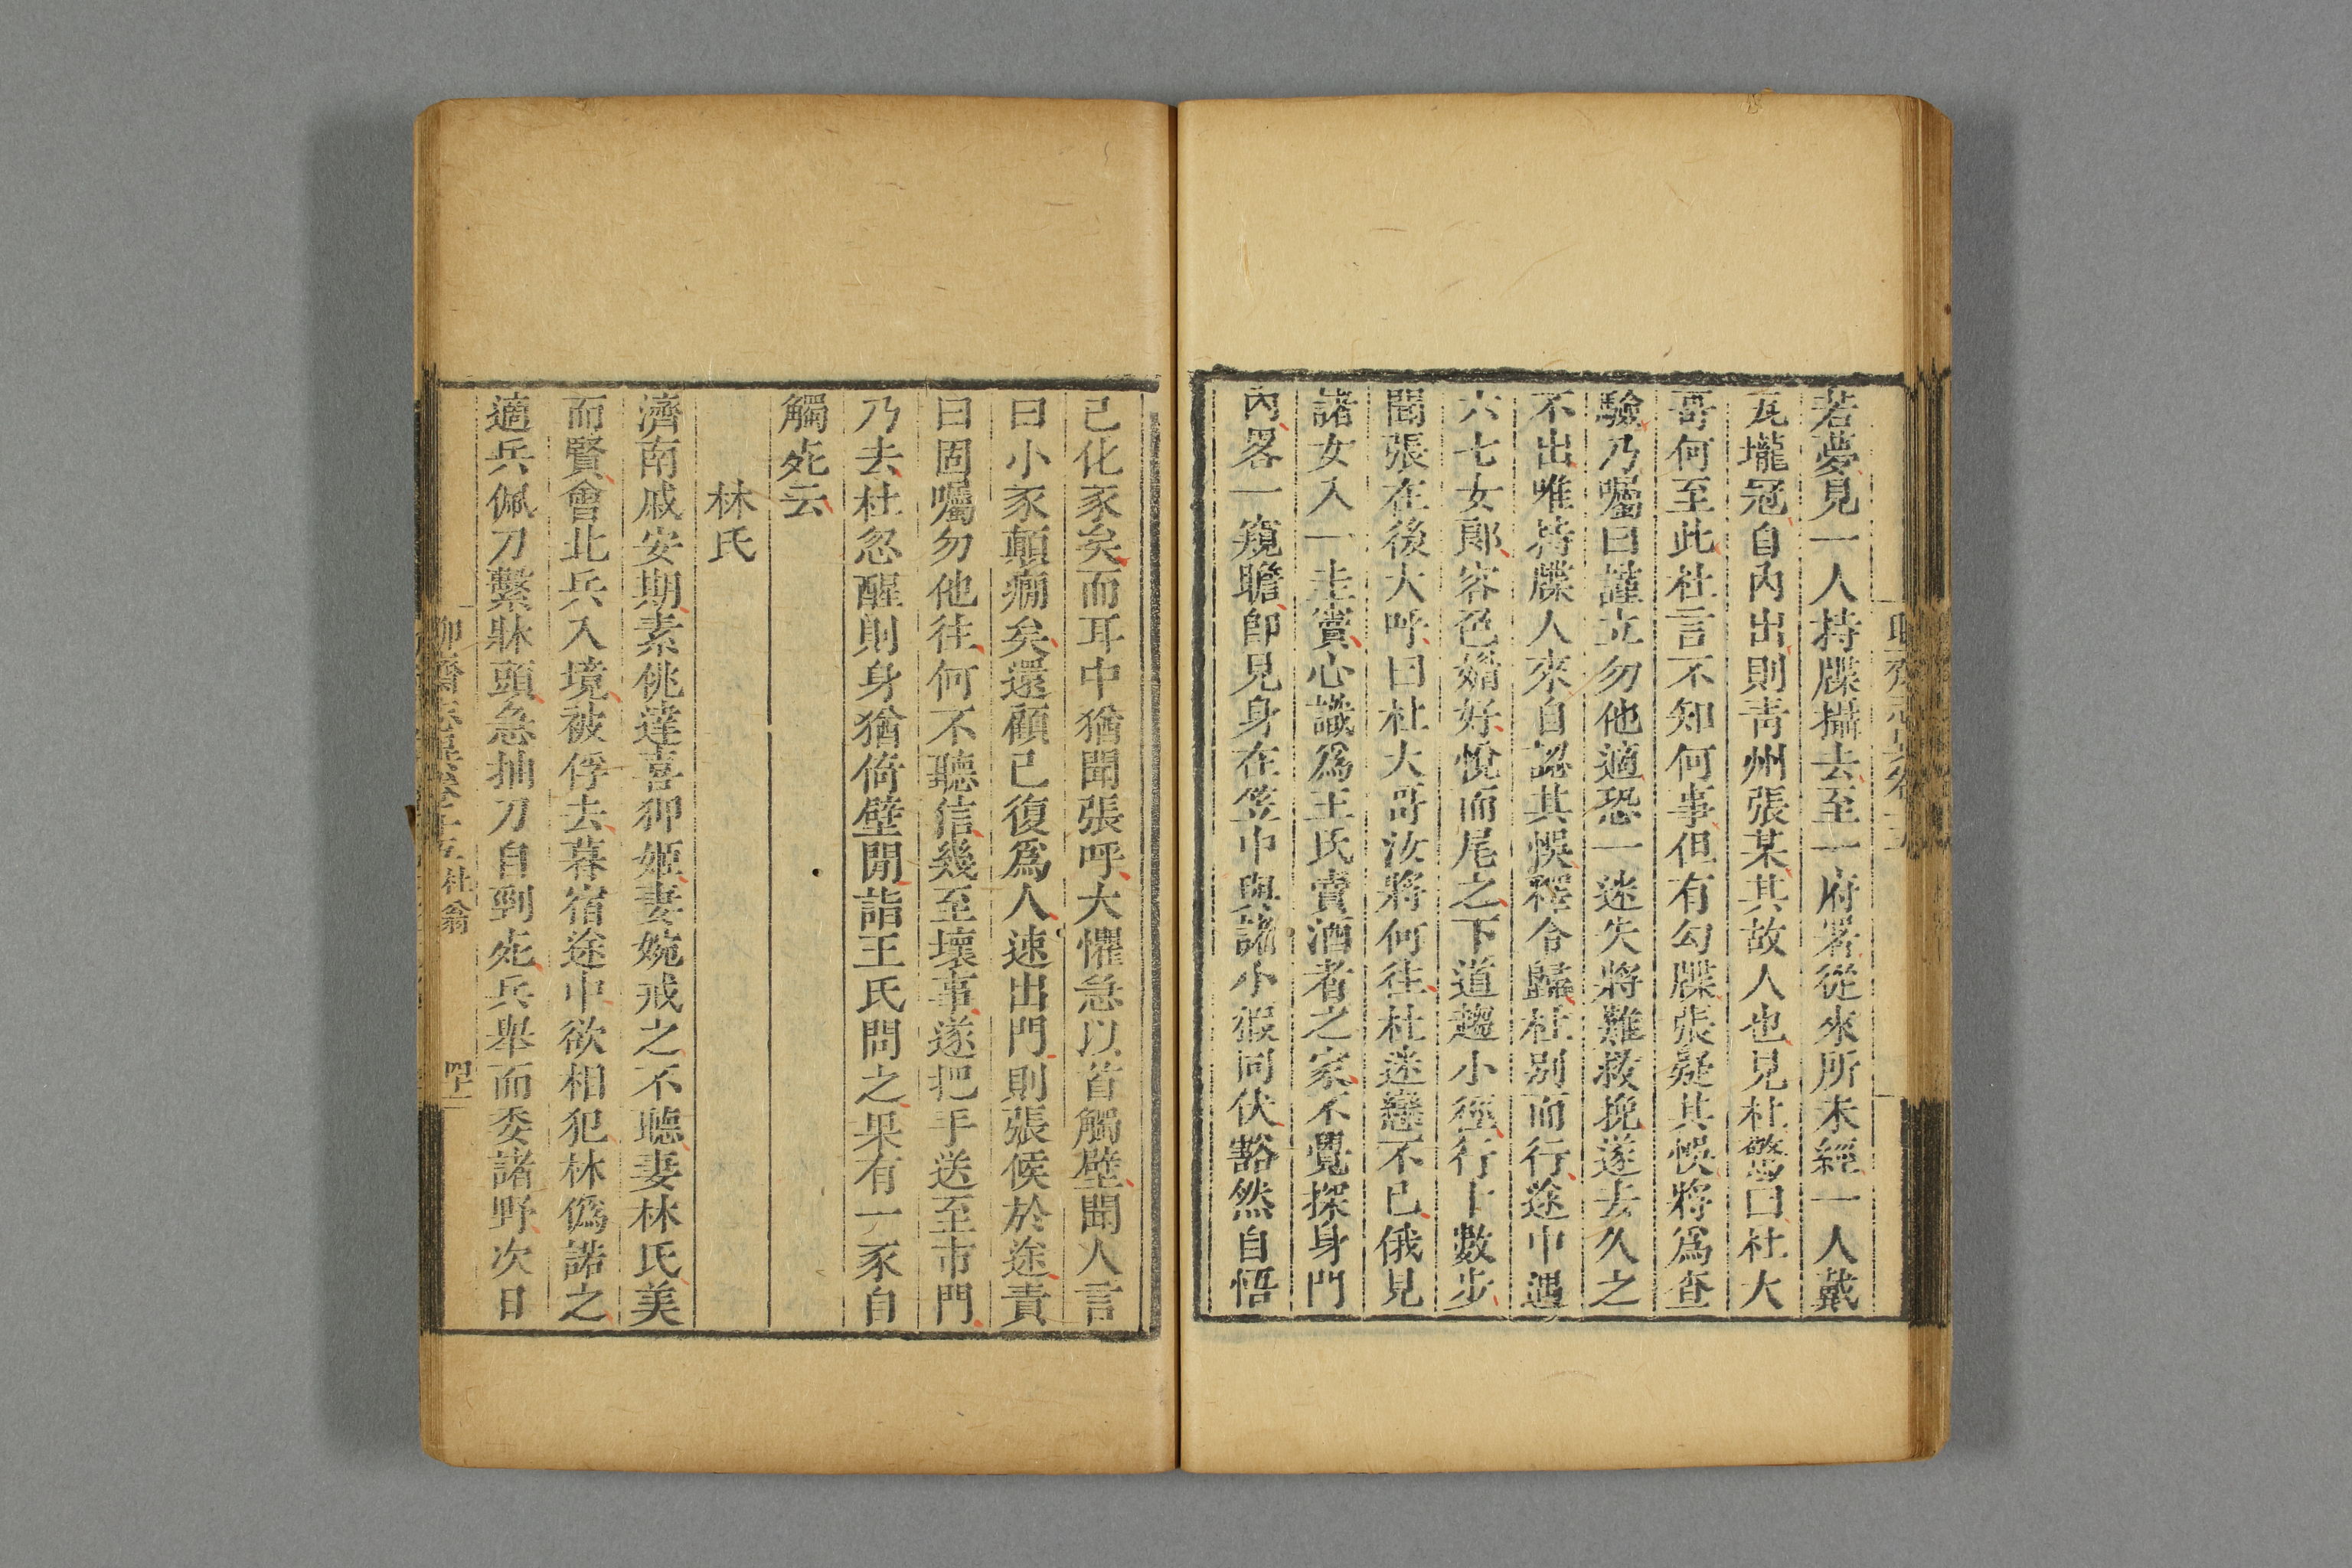 若夢見一人持牒攝去至一府署從來所未經一人戴
瓦壠冠自內出則靑州張某其故人也見杜驚曰杜大
哥何至此杜言不知何事但有勾牒張疑其悞將爲查
驗乃囑曰謹立勿他適恐一迷失將難救挽遂去久之
不出唯持牒人來自認其悞釋令歸杜別而行途中遇
六七女郎容色媚好悅而尾之下道趨小徑行十數步
聞張在後大呼曰杜大哥汝將何往杜迷戀不已俄見
諸女入一圭竇心識爲王氏賣酒者之家不覺探身門
內畧一窺瞻卽見身在苙中與諸小豭同伏豁然自悟
已化豕矣而耳中猶聞張呼大懼急以首觸壁聞人言
曰小豕顛癇矣還顧已復爲人速出門則張候於途責
曰固囑勿他往何不聽信幾至壞事遂把手送至市門
乃去杜忽醒則身猶倚壁閒詣王氏問之果有一豕自
觸死云
林氏
濟南戚安期素佻達喜狎姬妻婉戒之不聽妻林氏美
而賢會北兵入境被俘去暮宿途中欲相犯林僞諾之
適兵佩刀繫牀頭急抽刀自剄死兵舉而委諸野次日
杜翁